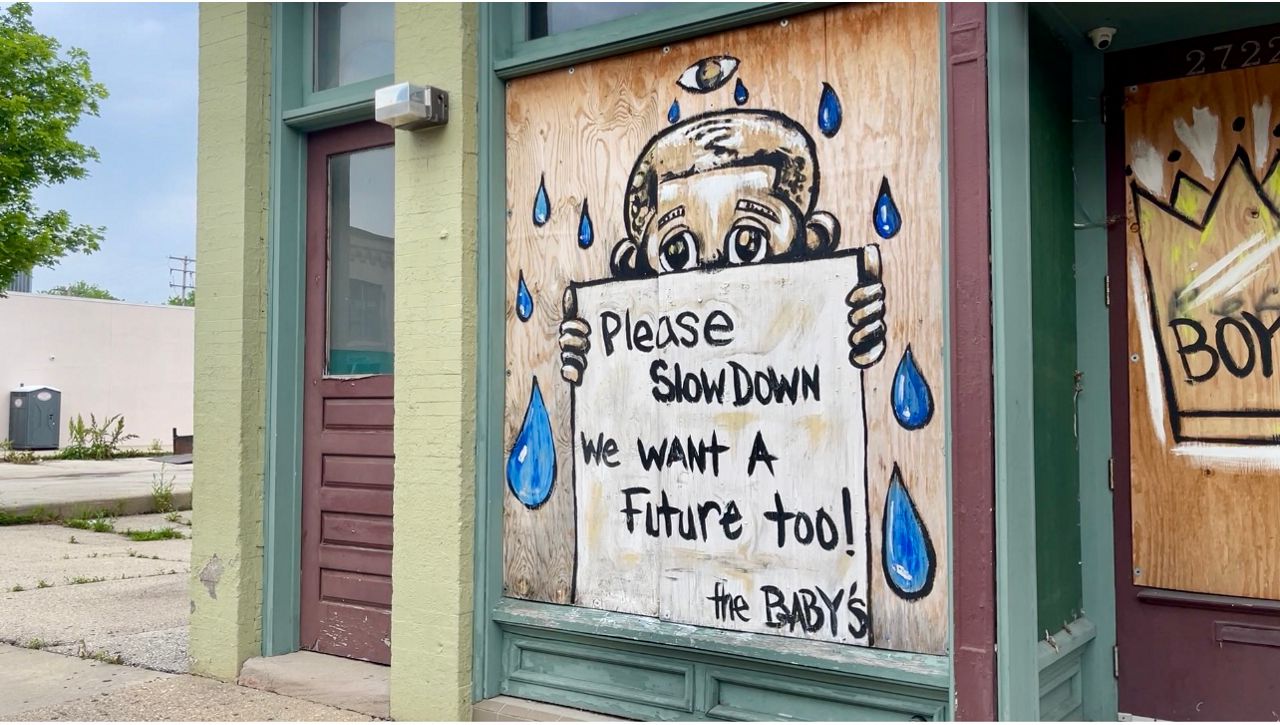 Please
SlowDown
We WANT A
Future too!
the BABY's
2722